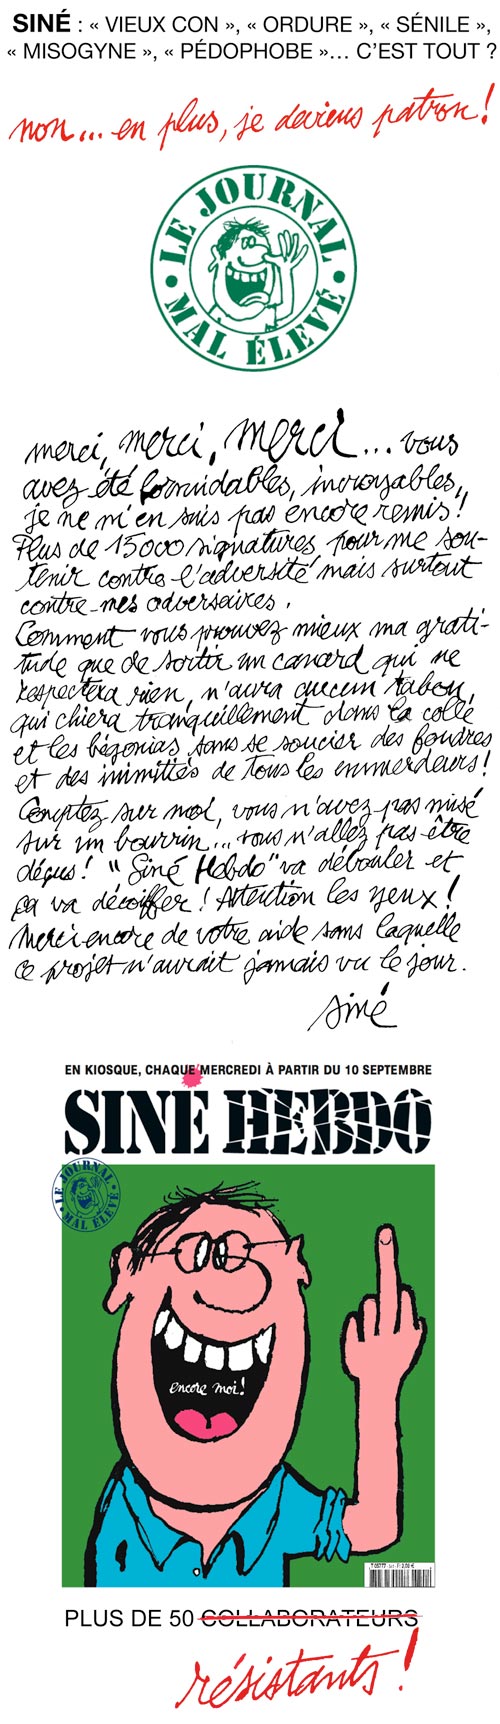 SINÉ : « VIEUX CON », « ORDURE », « SÉNILE »,
« MISOGYNE », « PÉDOPHOBE »… C’EST TOUT ?
non... en plus, je deviens patron!
LE JOURNAL
MAL ÉLEVÉ
merci, merci, merci... vous
avez été formidables, incroyables,
je ne m'en suis pas encore remis!
Plus de 15000 signatures, pour me sou-
tenir contre l'adversité mais surtout
contre mes adversaires.
Comment vous prouvez mieux ma grati-
tude que de sortir un canard qui ne
respectera rien, n'aura aucun tabou,
qui chiera tranquillement dans la colle
et les bégonias sans se soucier des foudres
et des inimitiés de tous les emmerdeurs!
Comptez sur moi, vous n'avez pas misé
sur un bourrin... vous n'allez pas être
déçus! "Siné Hebdo" va débouler et
ça va décoiffer! Attention les yeux!
Merci encore de votre aide sans laquelle
ce projet n'aurait jamais vu le jour.
Siné
EN KIOSQUE, CHAQUE MERCREDI À PARTIR DU 10 SEPTEMBRE
SINÉ HEBDO
LE JOURNAL
MAL ÉLEVÉ
encore moi!
PLUS DE 50 COLLABORATEURS
résistants!